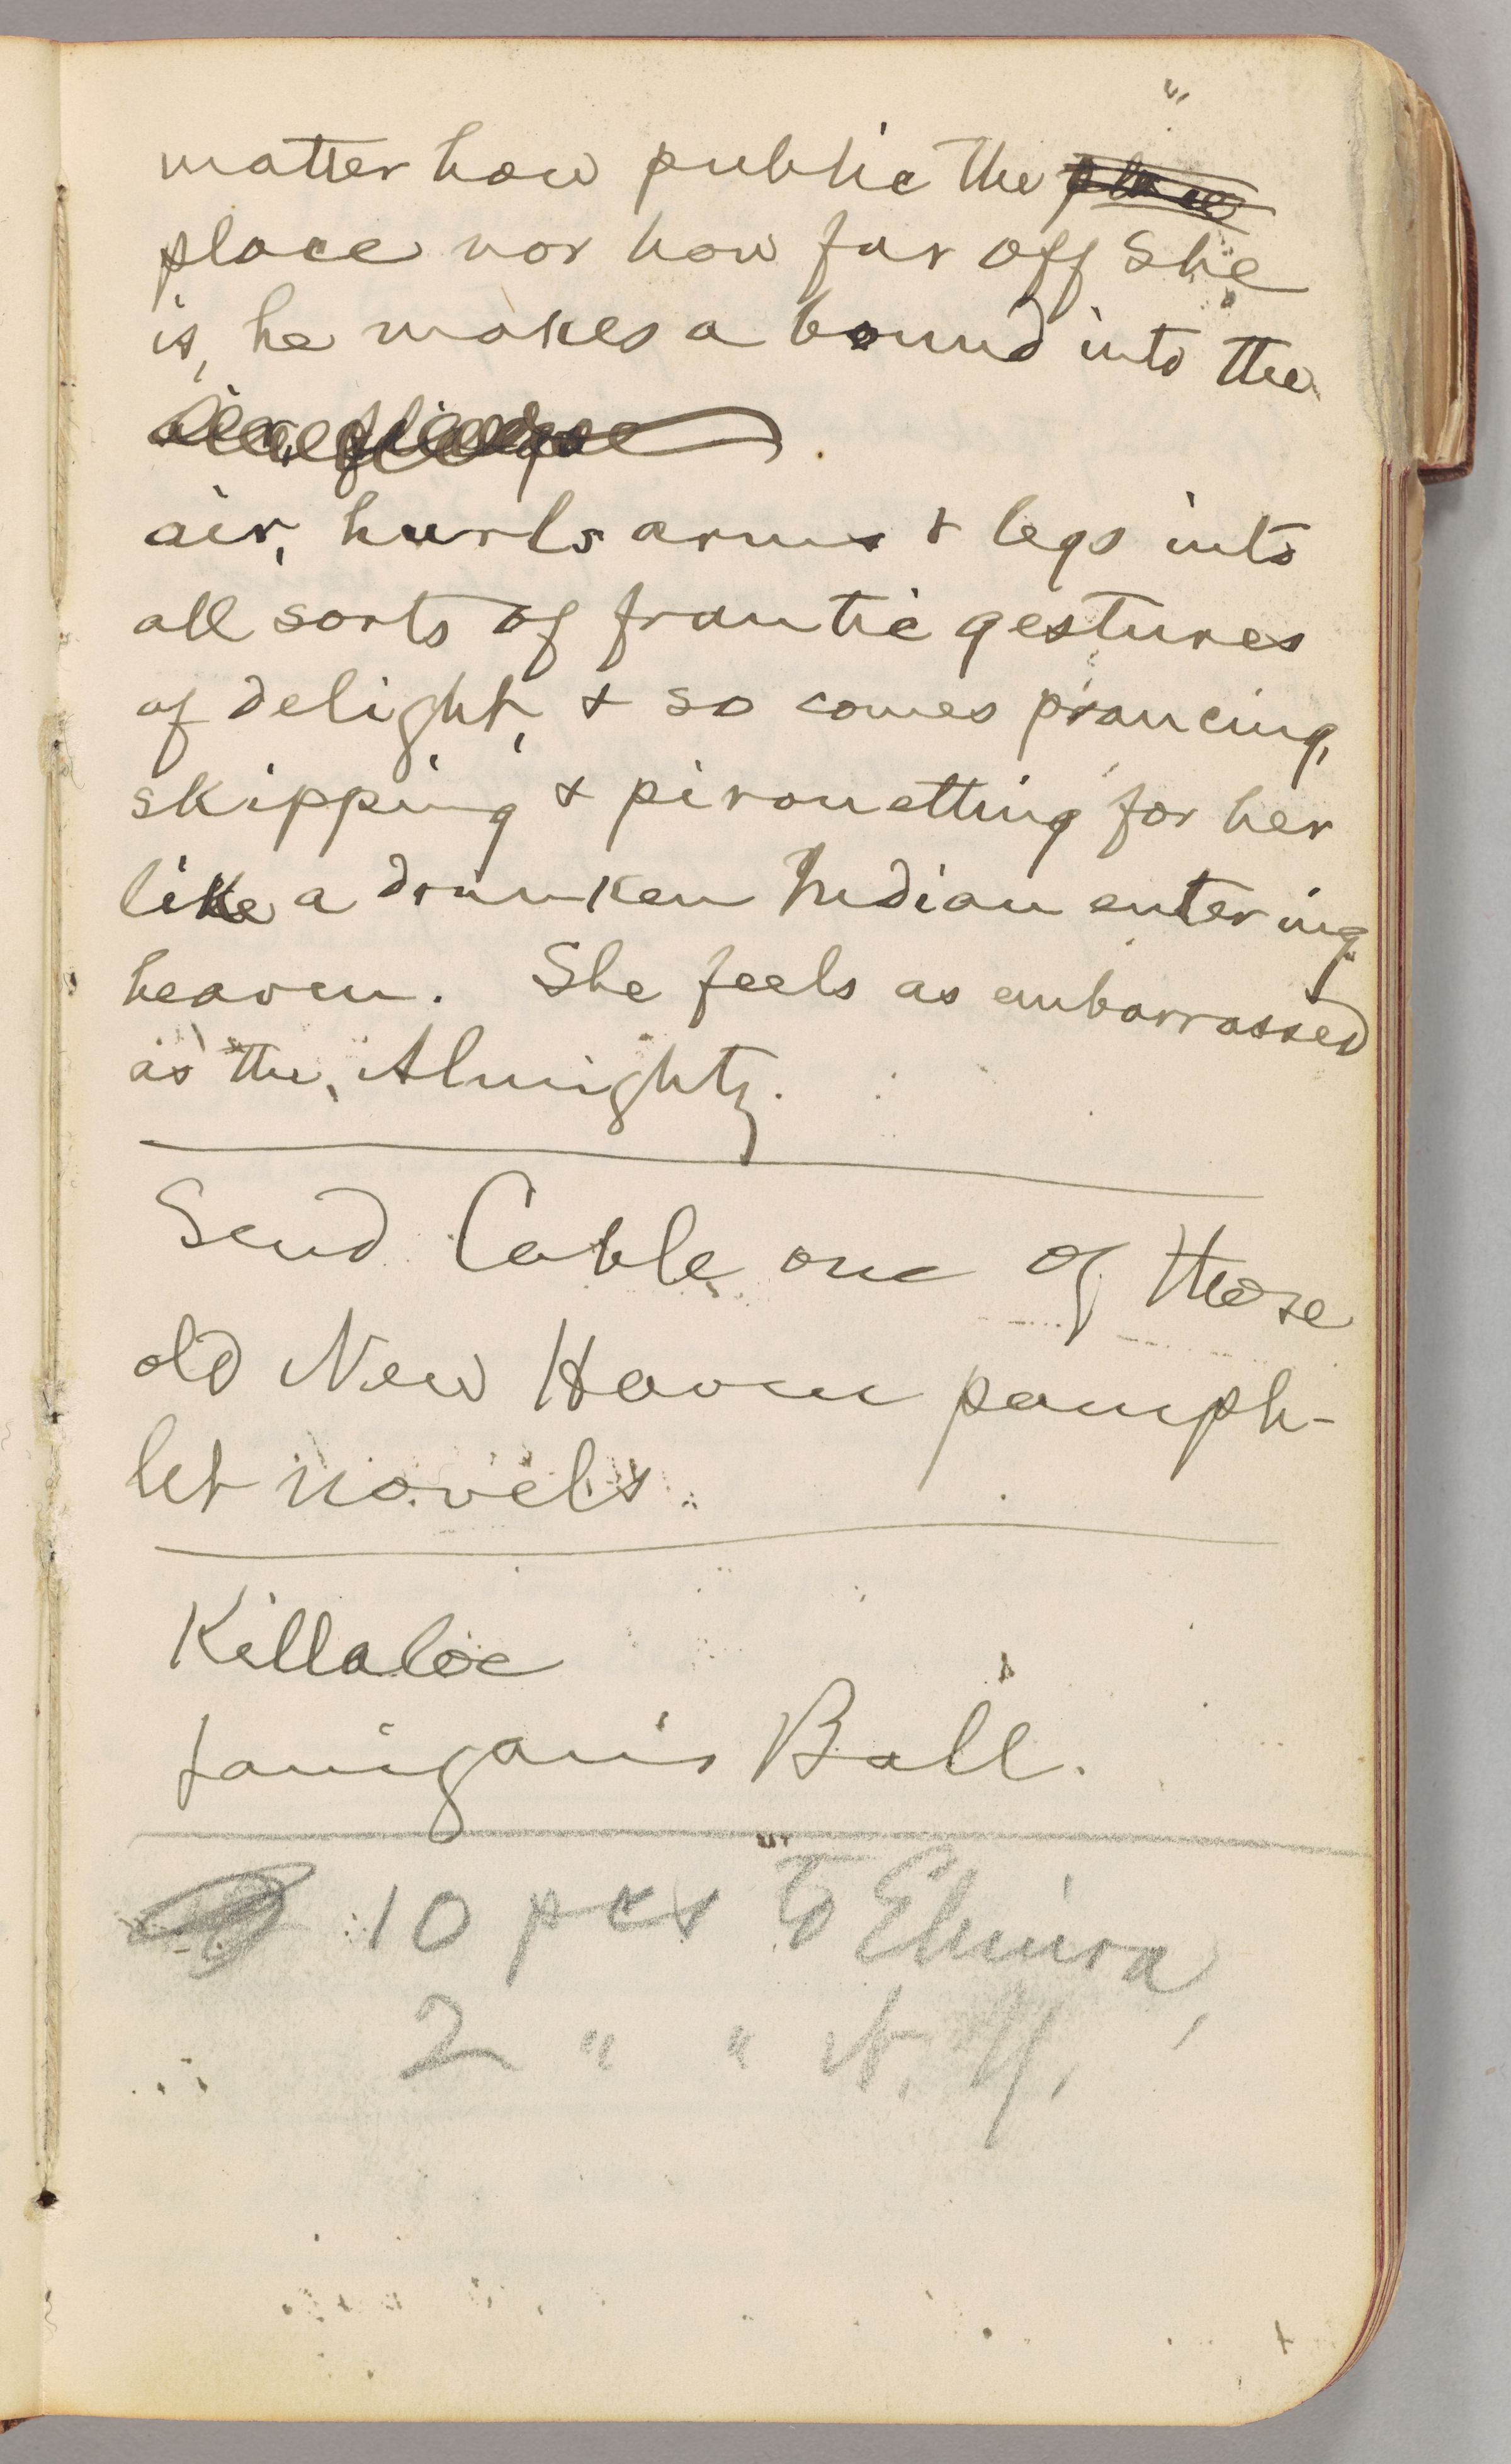 matter how public the place
place nor how far off she
is, he makes a bound into the
air, hurls arms & legs into
all sorts of frantic gestures
of delight, & so comes prancing,
skipping & pirouetting for her
like a drunken Indian entering
heaven. She feels as embarrassed
as the Almighty.
Send Cable one of those
old New Haven pamph-
let novels.
Killaloe
Lanigan's Ball.
10 pcs to Elmira,
2 " " N. Y.